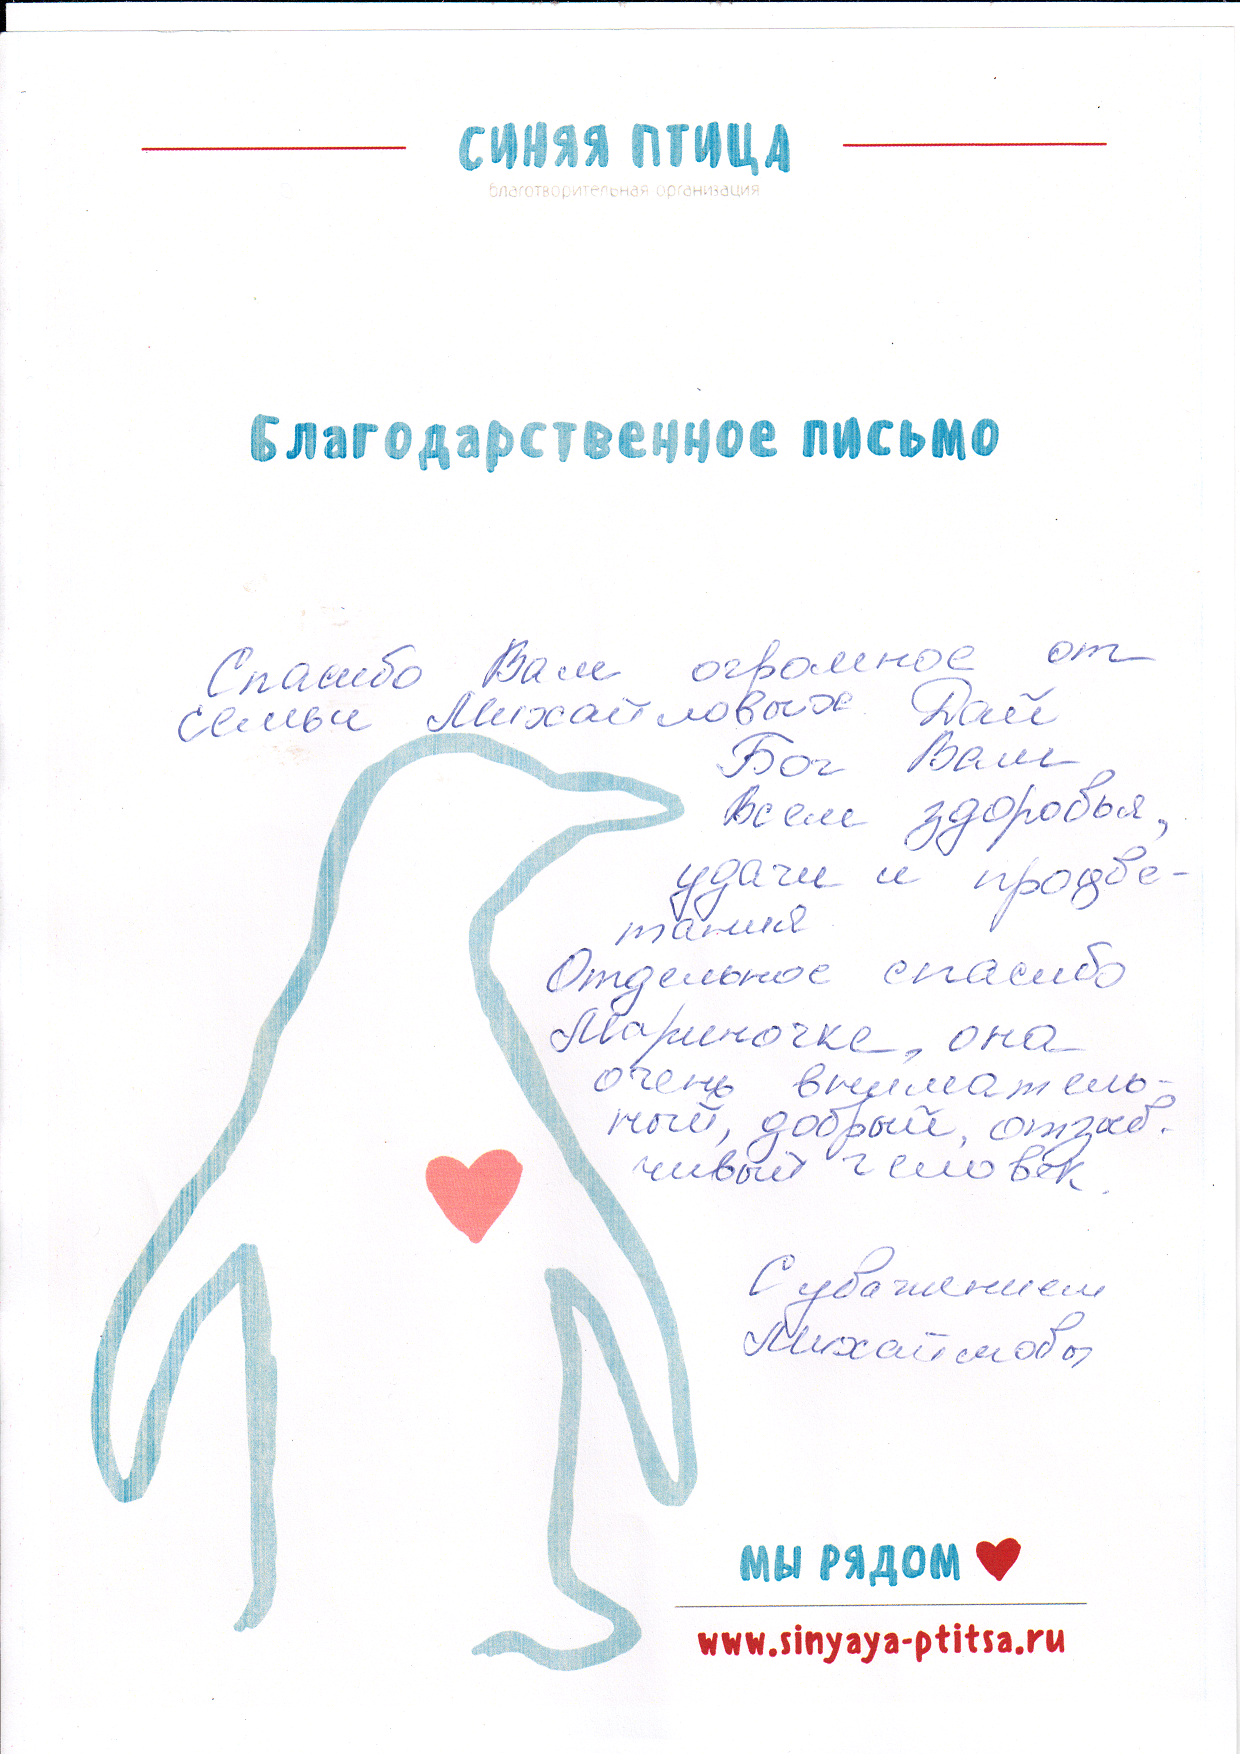 СИНЯЯ ПТИЦА
благотворительная организация
Благодарственное письмо
Спасибо Вам огромное от
семьи Михайловых Дай
Бог Вам
Всем здоровья,
удачи и процве-
тания
Отдельное спасибо
Мариночке, она
очень вниматель-
ный, добрый, отзыв.
чивый человек.
С уважением
Михайловы
МЫ РЯДОМ
www.sinyaya-ptitsa.ru